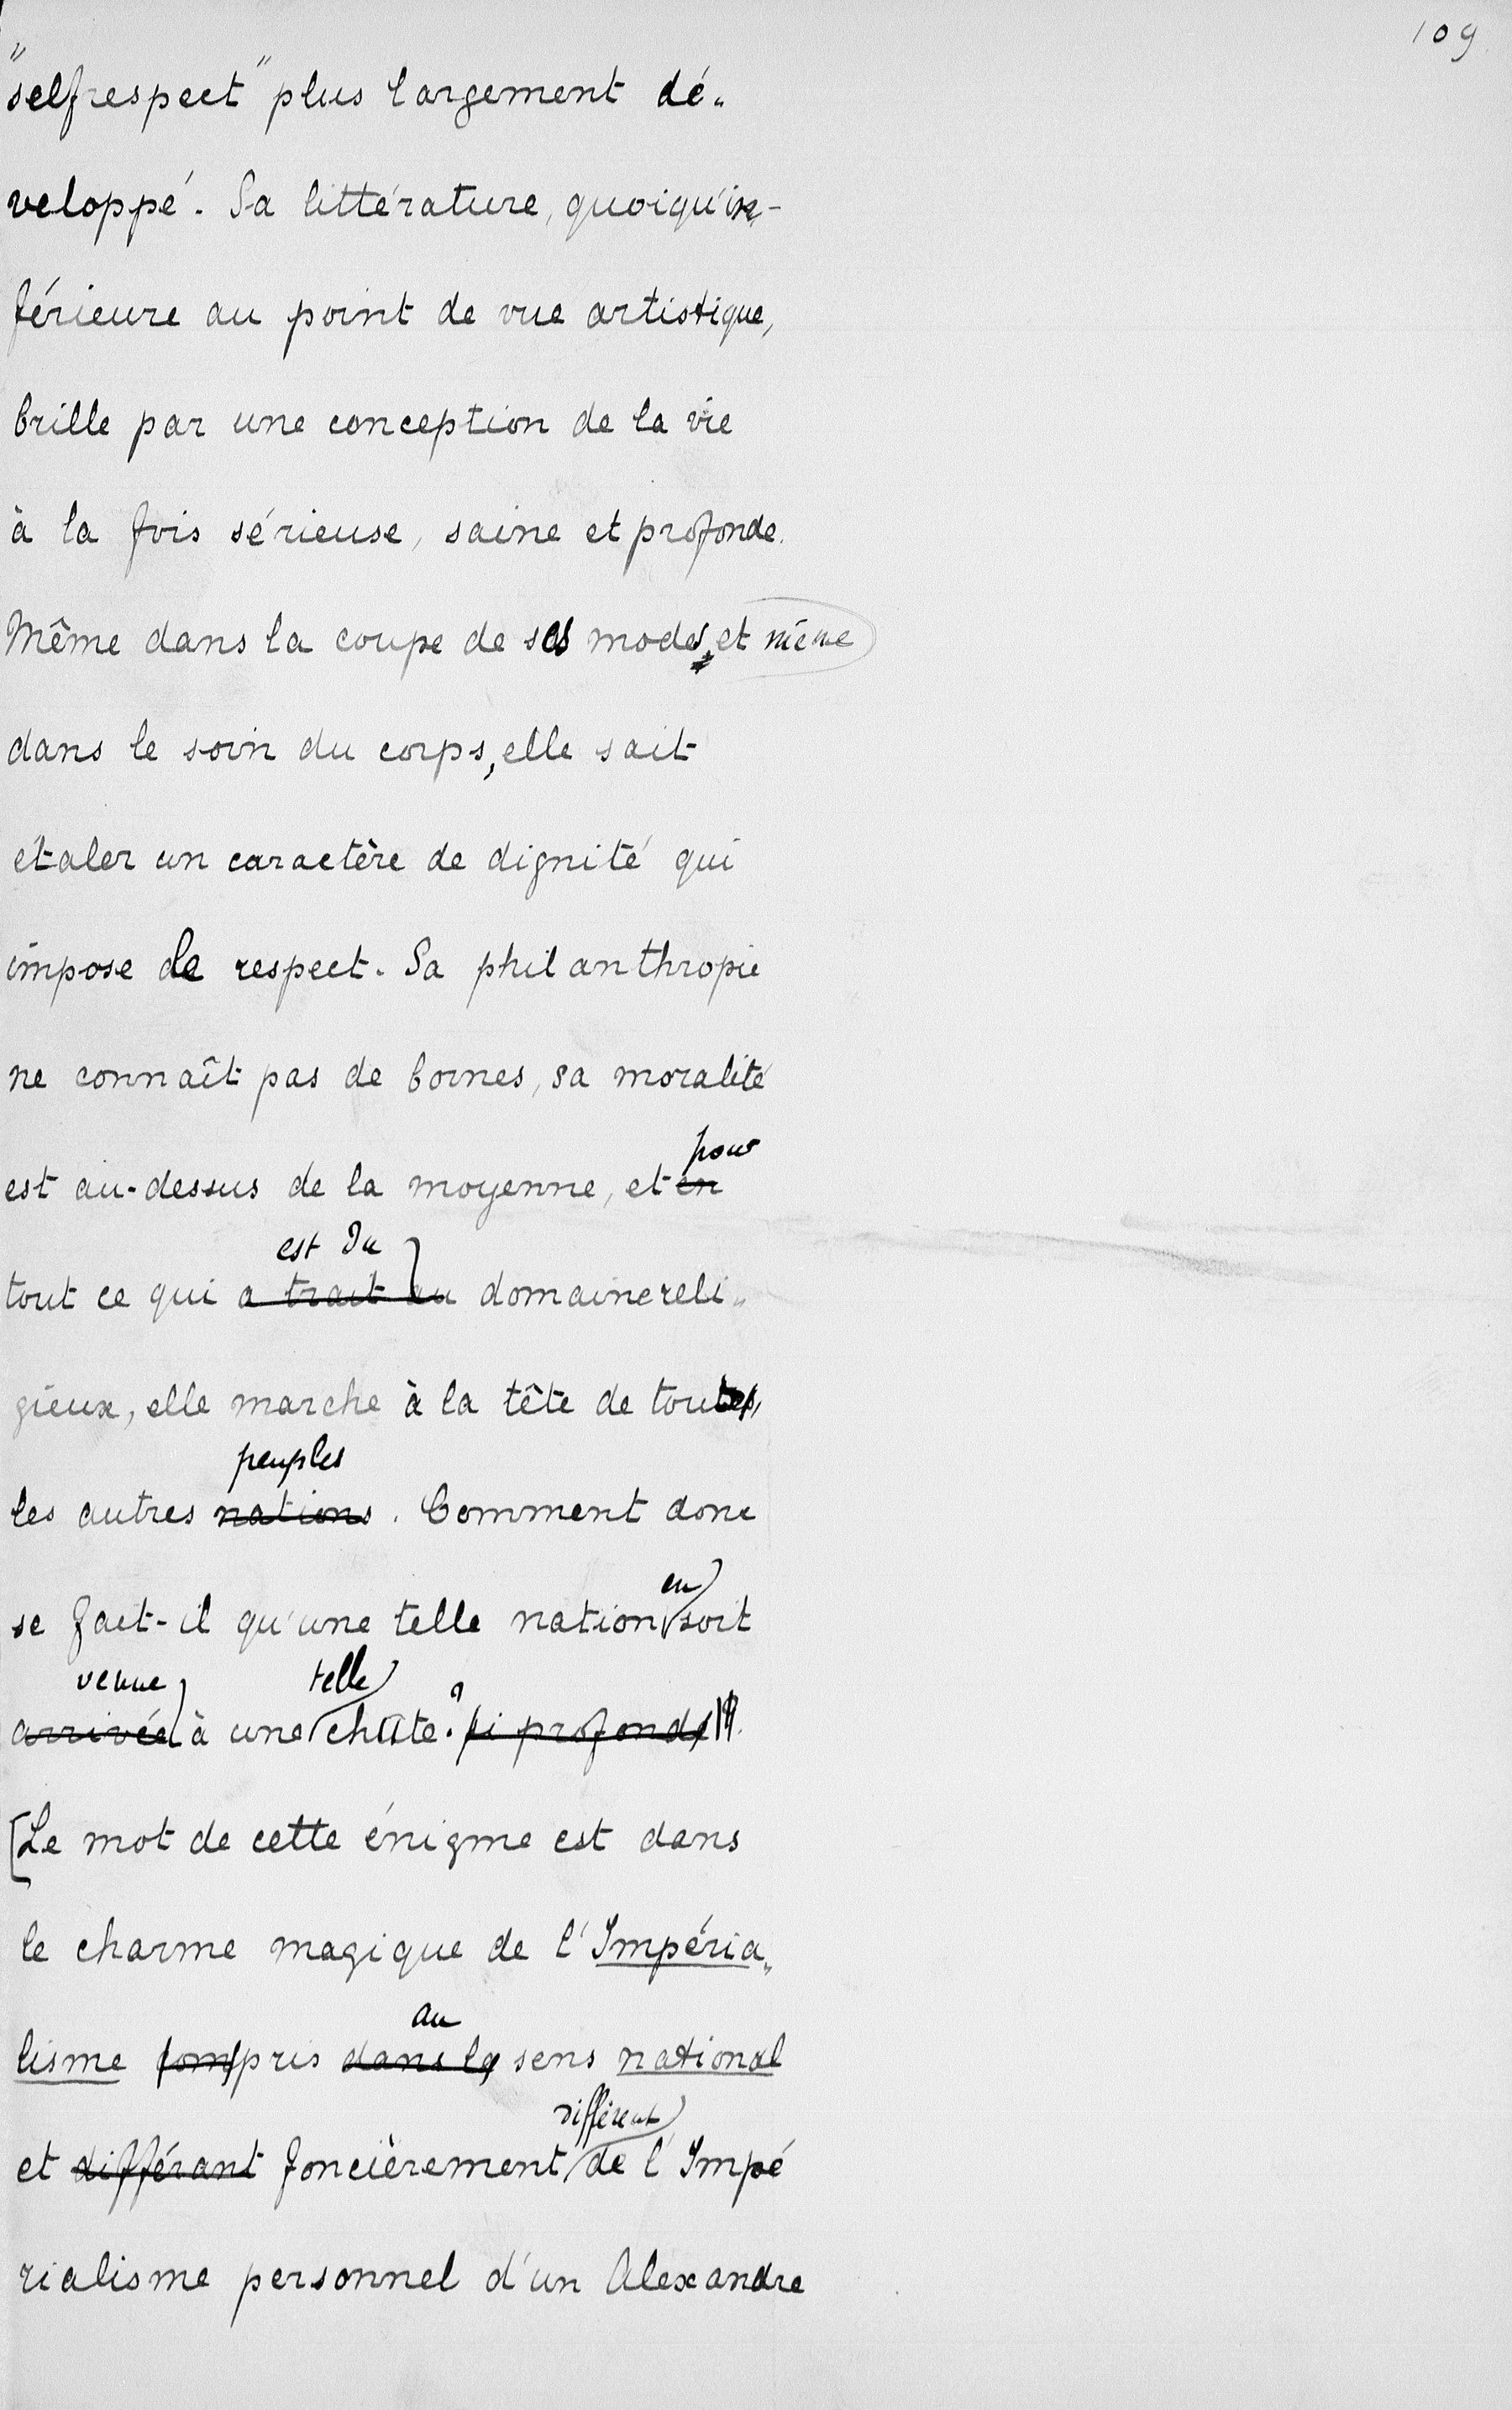 109
"selfrespect" plus largement dé-
veloppé. Sa littérature, quoiqu'in-
férieure au point de vue artistique,
brille par une conception de la vie
à la fois sérieuse, saine et profonde.
Même dans la coupe de ses modes, et même
dans le soin du corps, elle sait
étaler un caractère de dignité qui
impose le respect. Sa philanthropie
ne connaît pas de bornes, sa moralité
pour
est au-dessus de la moyenne, et en
est du
tout ce qui a trait au domaine reli-
gieux, elle marche à la tête de toutes
peuples
les autres nations. Comment donc
en
se fait-il qu'une telle nation soit
venue telle
arrivée à une chute? si profonde
[Le mot de cette énigme est dans
le charme magique de l'Impéria-
au
lisme compris dans le sens national
différent
et différant foncièrement de l'Impé
rialisme personnel d'un Alexandre